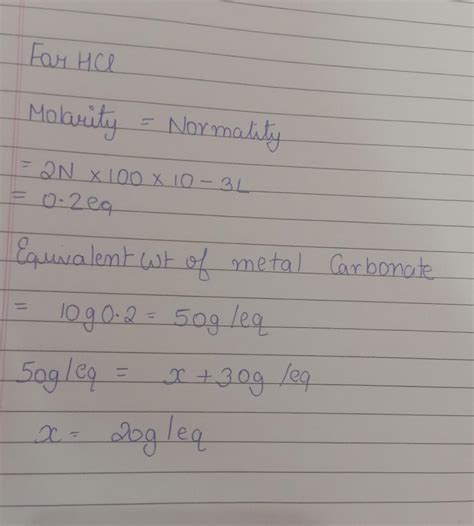 For HCl
Molarity = Normality
= 2N × 100 × 10 - 3L
= 0.2eq
Equivalent wt of metal Carbonate
= 10g0.2 = 50g/eq
50g/eq = x + 30g/eq
x = 20g/eq